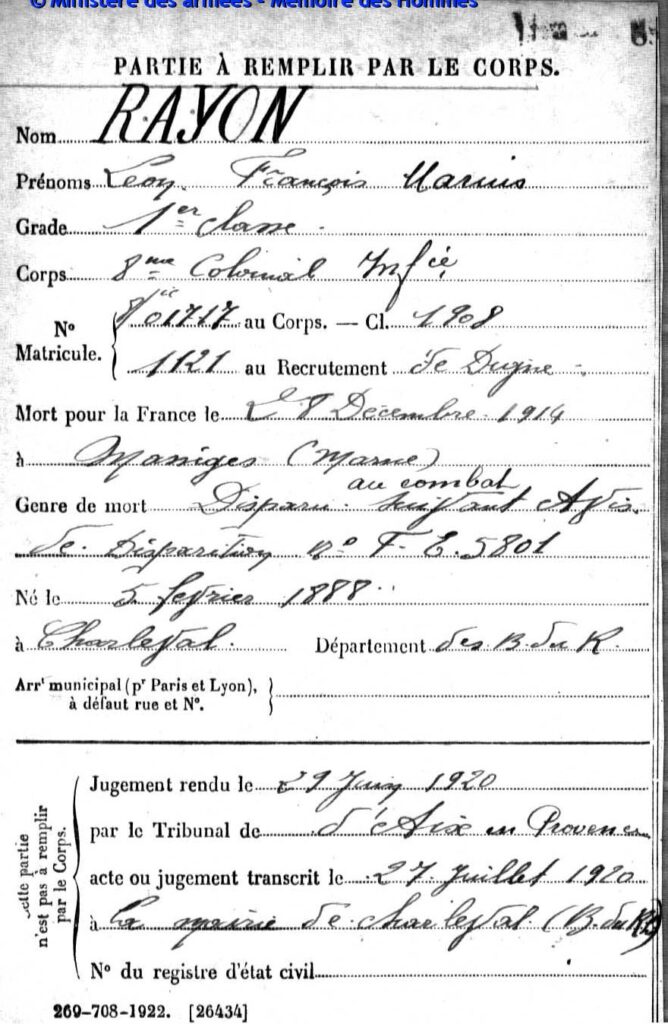 © Ministère des armées - Mémoire des Hommes
PARTIE À REMPLIR PAR LE CORPS.
Nom RAYON
Prénoms Léon François Marius
Grade 1er classe
Corps 8me Colonial Infie
No Matricule. 01717 au Corps. — Cl. 1908
1121 au Recrutement de Digne
Mort pour la France le 28 Décembre 1914
à Massiges (Marne)
au combat
Genre de mort Disparu suivant Avis
de Disparition No F. E. 5801
Né le 5 fevrier 1888
à Charleval. Département des B. du R.
Arrt municipal (pr Paris et Lyon),
à défaut rue et No.
Cette partie
n'est pas à remplir
par le Corps.
Jugement rendu le 29 Juin 1920
par le Tribunal de d'Aix en Provence
acte ou jugement transcrit le 27 Juillet 1920
à la mairie de Charleval (B. du R)
No du registre d'état civil
269-708-1922. [26434]